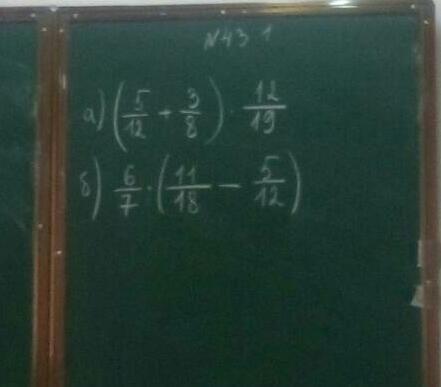 №431
а) (5/12 + 3/8) · 12/19
б) 6/7 · (11/18 − 5/12)